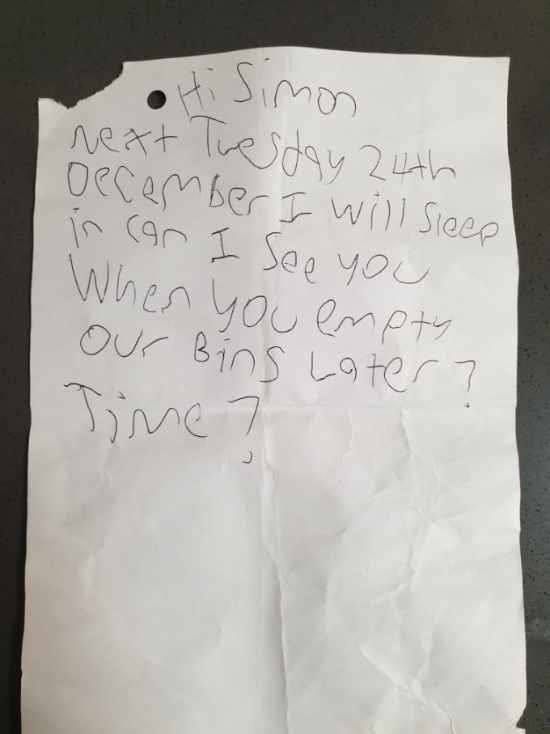 Hi Simon
Next Tuesday 24th
December I will sleep
in can I see you
When you empty
our Bins Later?
Time?